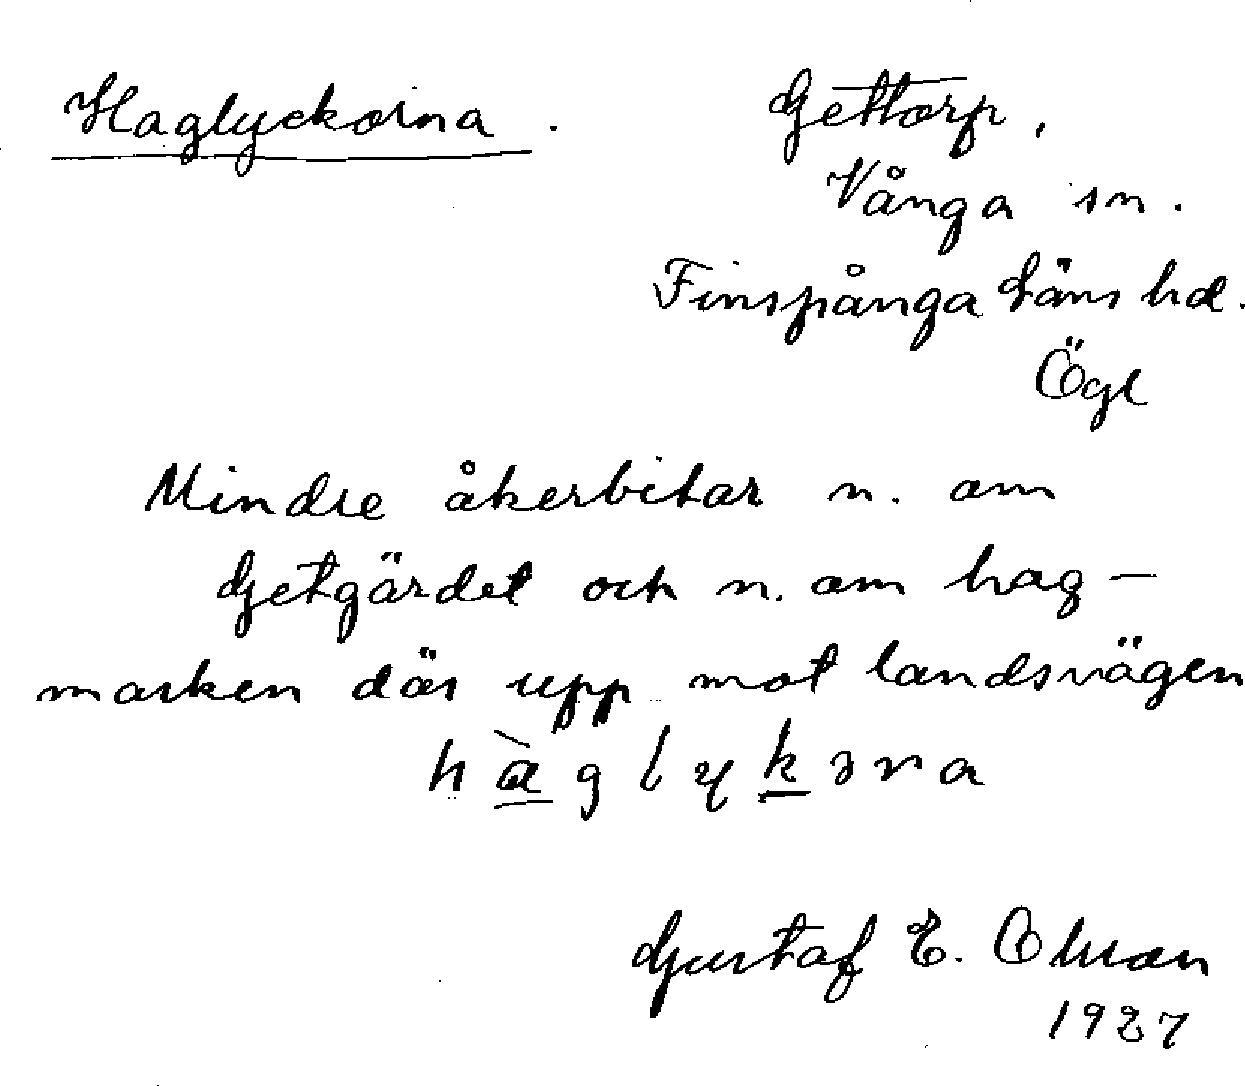 Haglyckorna.
Gettorp,
Vånga sn.
Finspånga Läns hd.
Ögl
Mindre åkerbitar n. om
Getgärdet och n. om hag-
marken där upp mot landsvägen
hàglykəra
Gustaf E. Olman
1927